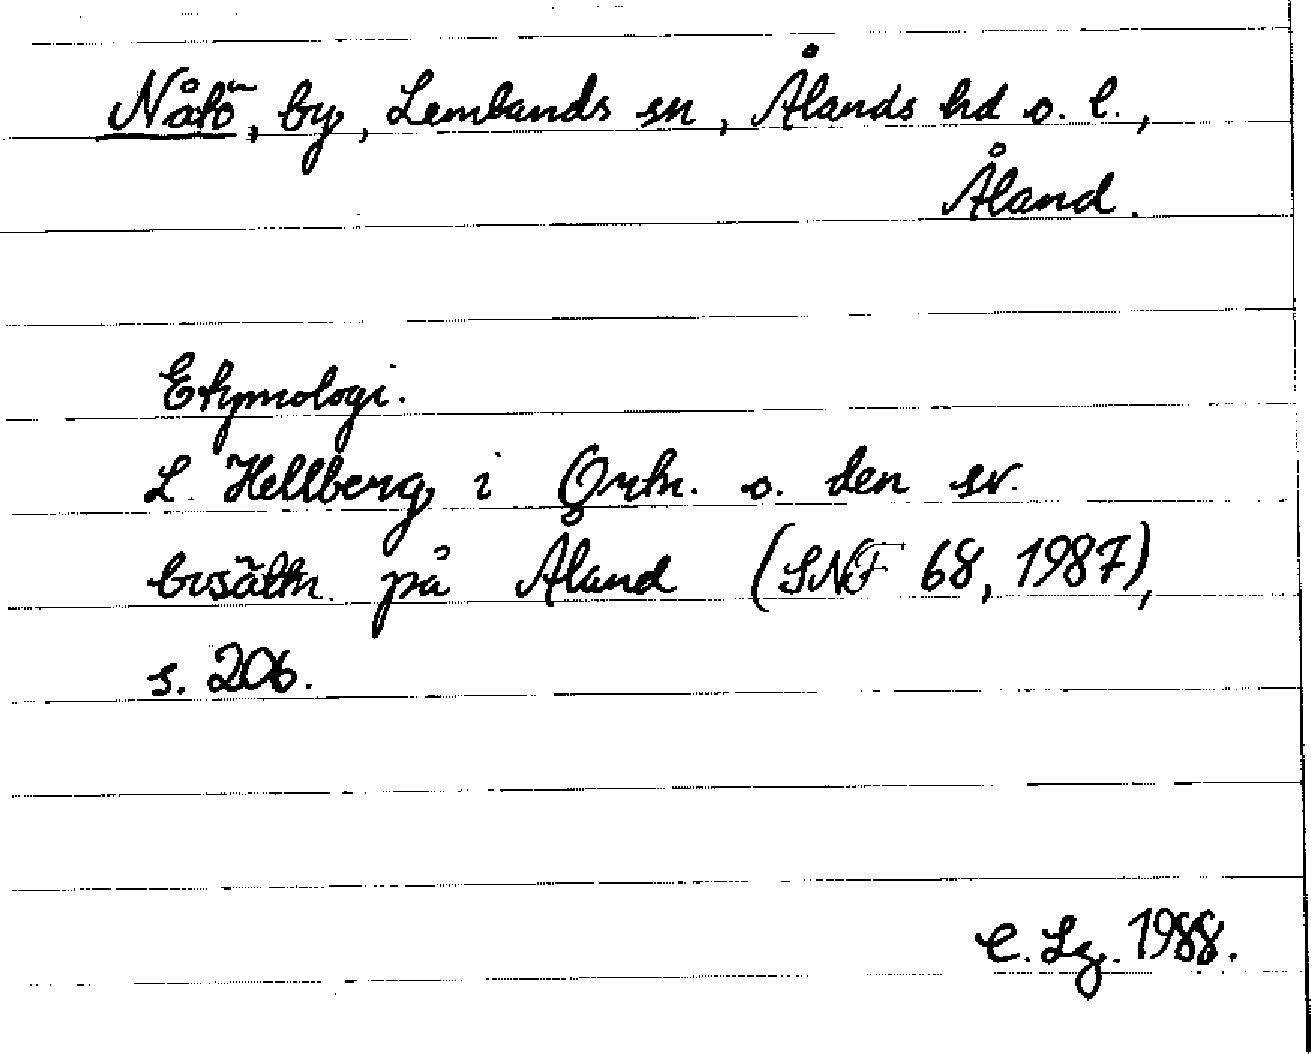 Nåtö, by, Lemlands sn, Ålands hd o. l.,
Åland.
Etymologi.
L. Hellberg i Ortn. o. den sv.
bosättn. på Åland (SNF 68, 1987),
s. 206.
C. Lg. 1988.